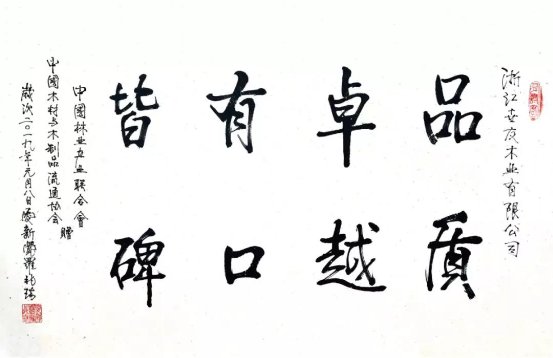 浙江世友木业有限公司
品质
卓越
有口
皆碑
中國林业产业联合會
中國木材与木制品流通协会 贈
歲次二〇一九年元月八日